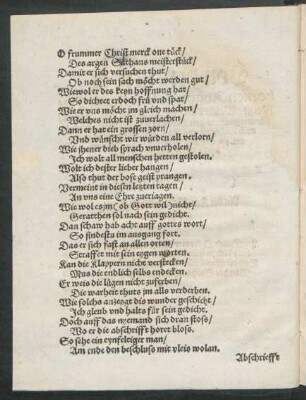 O frummer Christ merck one tück/
Des argen Sathans meisterstück/
Damit er sich versuchen thut/
Ob noch sein sach möcht werden gut/
Wiewol er des keyn hoffnung hat/
So dichtet erdoch frü vnd spat/
Wie er vns möcht im gleich machen/
Welches nicht ist zuuerlachen/
Dann er hat ein grossen zorn/
Vnd wünscht wir würden all verlorn/
Wie jhener dieb sprach vnuerholen/
Ich wolt all menschen hetten gestolen.
Wolt ich dester lieber hangen/
Also thut der böse geist prangen.
Vermeint in diesen letzten tagen/
An vns eine Ehre zueriagen.
Wie wol es im (ob Gott wil) nicht/
Geratthen sol nach sein gedicht.
Dan schaw hab acht auff gottes wort/
So findestu im ausgang fort.
Das er sich fast an allen orten/
Straffet mit sein eygen worten.
Kan die Klappern nicht verstecken/
Mus die endlich selbs endecken.
Er weis die lügen nicht zuferben/
Die warheit thuts jm alls verderben.
Wie solchs anzeygt dis wunder geschicht/
Ich gleub vnd halts für sein gedicht.
Doch auff das nyemand sich dran stoss/
Wo er die abschrifft horet bloss.
So sehe ein eynfeltiger man/
Am ende den beschluss mit vleis wol an.
Abschriefft